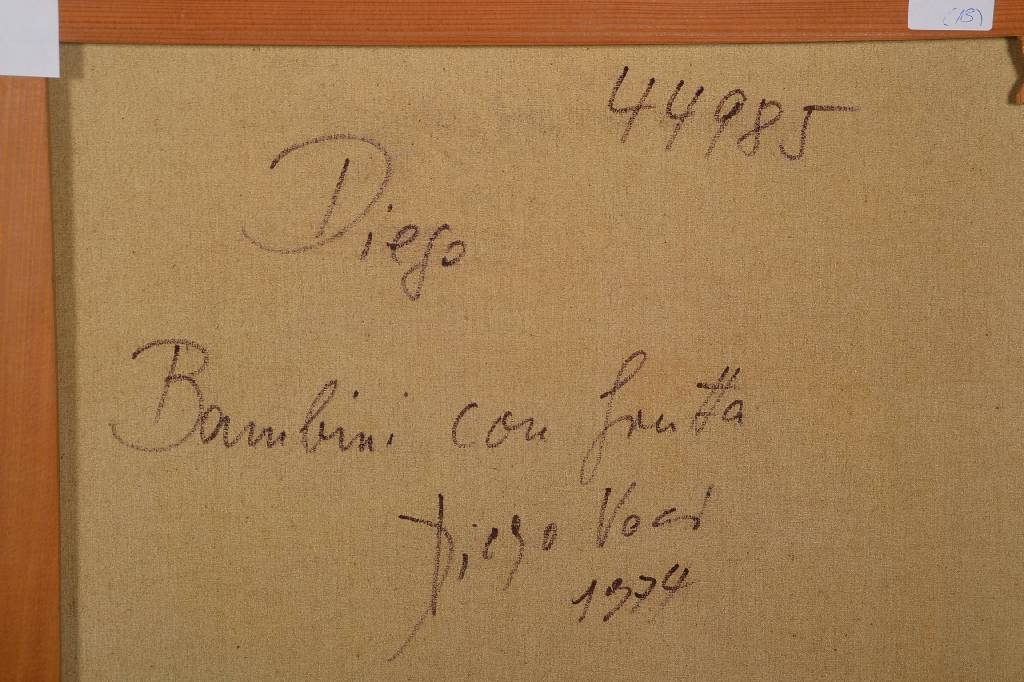 (13)
44985
Diego
Bambini con frutta
Diego Voci
1974